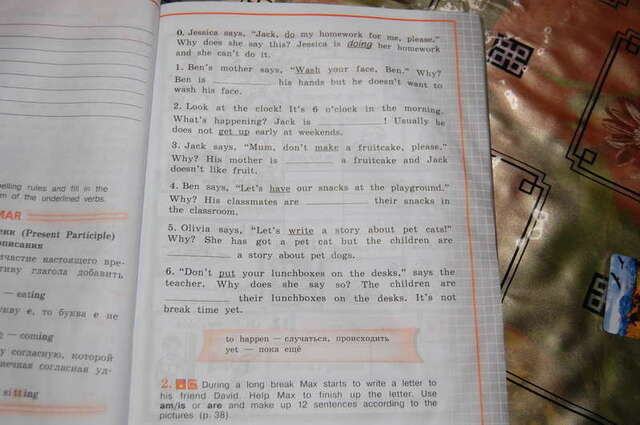 elling rules and fill in the
m of the underlined verbs.
MAR
ени (Present Participle)
писания
ичастие настоящего вре-
тиву глагола добавить
— eating
укву е, то буква е не
— coming
у согласную, которой
нечная согласная уд-
sitting
0. Jessica says, “Jack, do my homework for me, please.”
Why does she say this? Jessica is doing her homework
and she can't do it.
1. Ben's mother says, “Wash your face, Ben.” Why?
Ben is __________ his hands but he doesn't want to
wash his face.
2. Look at the clock! It's 6 o'clock in the morning.
What's happening? Jack is __________! Usually he
does not get up early at weekends.
3. Jack says, “Mum, don't make a fruitcake, please.”
Why? His mother is ________ a fruitcake and Jack
doesn't like fruit.
4. Ben says, “Let's have our snacks at the playground.”
Why? His classmates are __________ their snacks in
the classroom.
5. Olivia says, “Let's write a story about pet cats!”
Why? She has got a pet cat but the children are
__________ a story about pet dogs.
6. “Don't put your lunchboxes on the desks,” says the
teacher. Why does she say so? The children are
__________ their lunchboxes on the desks. It's not
break time yet.
to happen — случаться, происходить
yet — пока ещё
2. During a long break Max starts to write a letter to
his friend David. Help Max to finish up the letter. Use
am/is or are and make up 12 sentences according to the
pictures (p. 38).